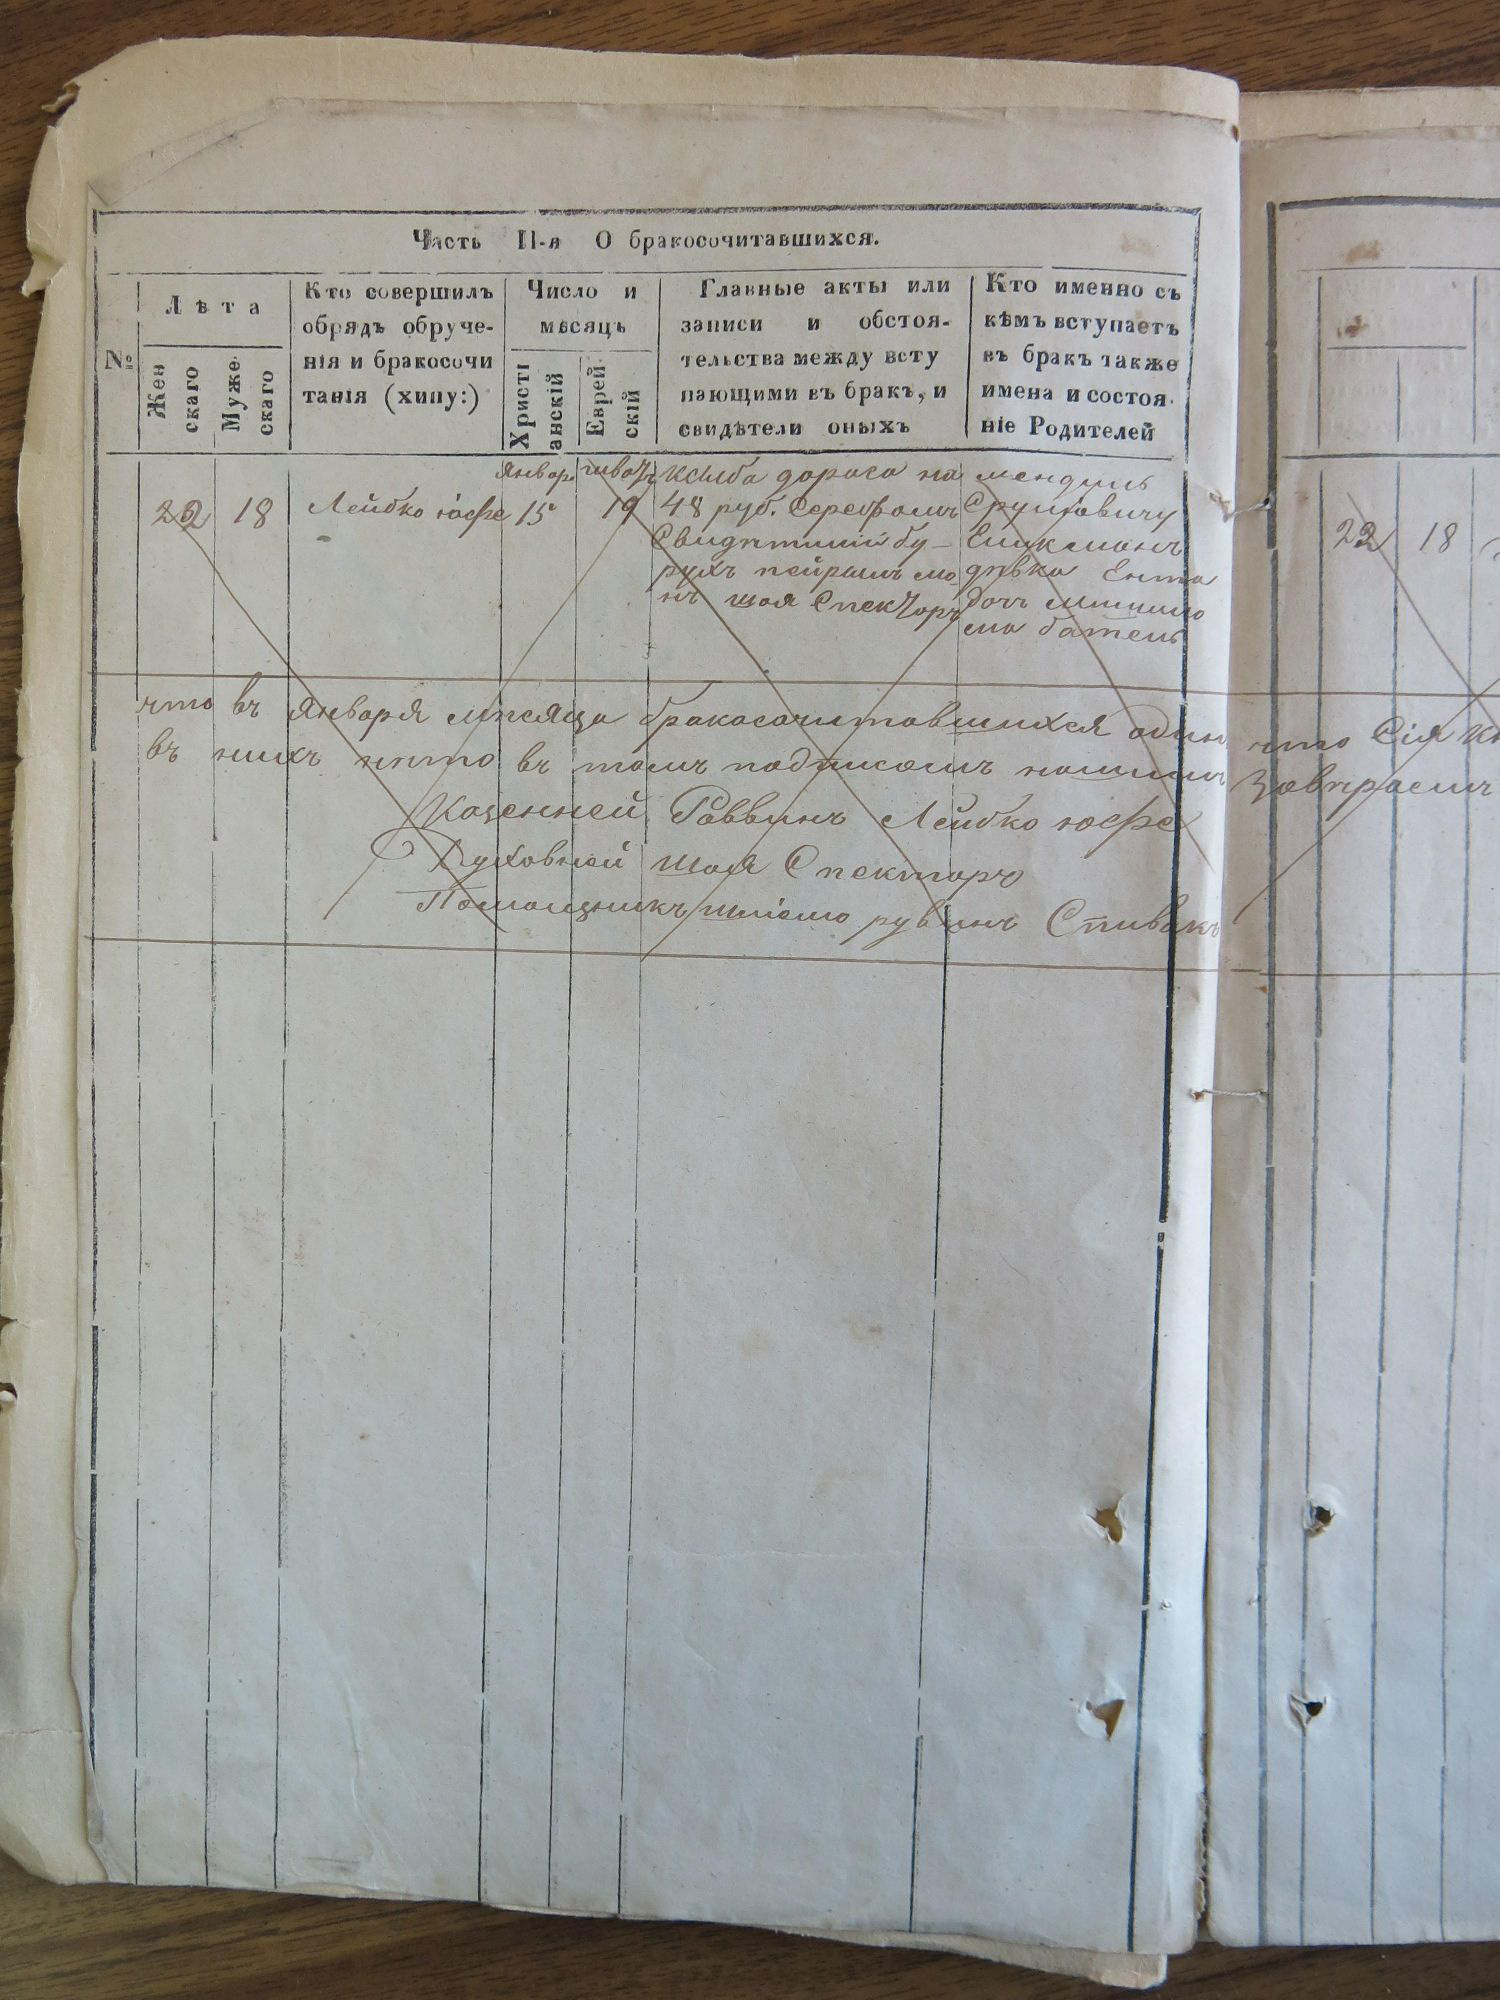 Часть II-я О бракосочитавшихся.
№
Лѣта
Женскаго
Мужескаго
Кто совершилъ
обрядъ обруче-
нія и бракосочи
танія (хипу:)
Число и
мѣсяцъ
Христіанскій
Еврей-скій
Главные акты или
записи и обстоя-
тельства между всту
пающими въ бракъ, и
свидѣтели оныхъ
Кто именно съ
кѣмъ вступаетъ
въ бракъ также
имена и состоя-
ніе Родителей
22 18 Лейбко юсфе
Январ.
15
19
на
48 руб. серебромъ
бу-
рухъ
нъ шоя Спекторъ
мендель
Сруловичу
дѣвка Ента
доч
что въ Января мѣсяца бракосочитовшихся один
въ нихъ нѣто въ томъ подписомъ нашимъ
Казенней Раввинъ Лейбко юсфе
Духовней шоя Спекторъ
Помощникъ шліомо рувинъ Спивакъ
22 18
что Сія